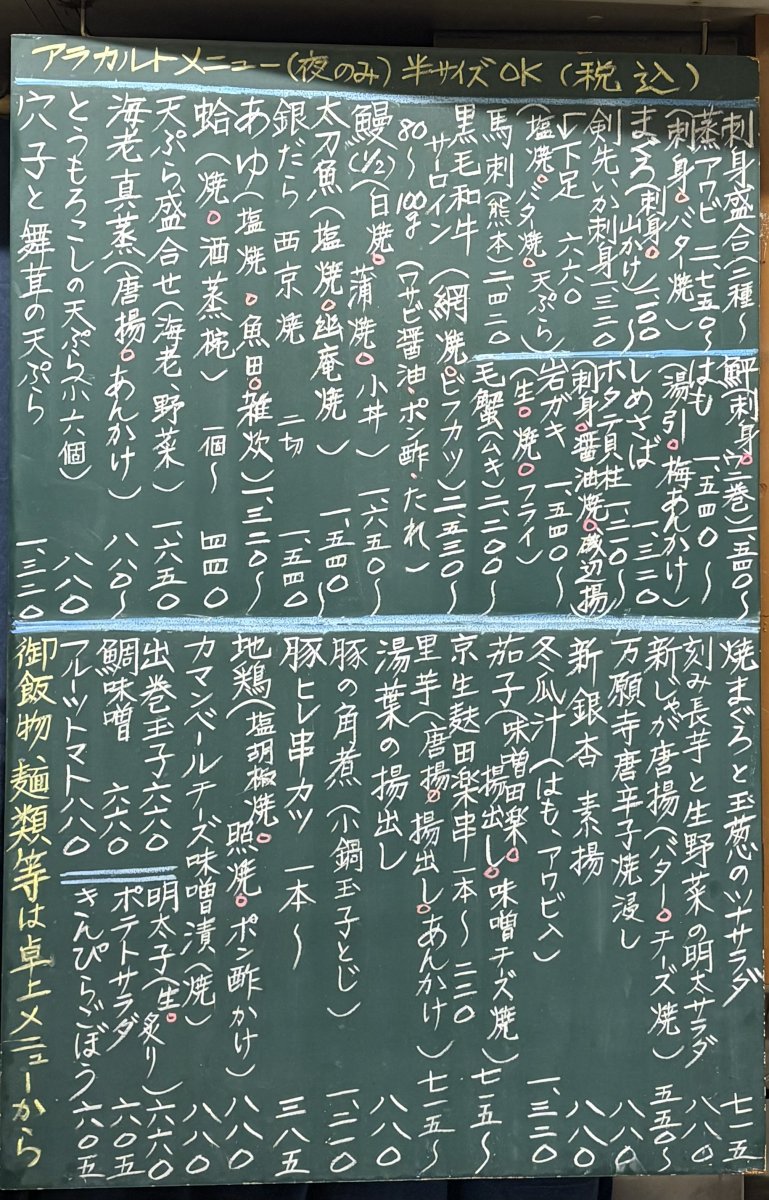 アラカルトメニュー(夜のみ)半サイズOK(税込)
刺身盛合(二種〜
蒸アワビ 二、七五〇〜
(刺身。バター焼)
まぐろ(刺身。山かけ)一、一〇〇〜
剣先いか刺身一、三二〇
↓下足 六六〇
(塩焼。バタ焼。天ぷら)
馬刺(熊本)二、四二〇
鮃(刺身。ウニ巻)一、五四〇〜
はも 一、五四〇〜
(湯引。梅あんかけ)
しめさば 一、三二〇
ホタテ貝柱一、二一〇〜
(刺身。醤油焼。磯辺揚)
岩ガキ 一、五四〇〜
(生。焼。フライ)
毛蟹(ムキ)二、二〇〇〜
黒毛和牛(網焼。ビフカツ)二、五三〇〜
サーロイン
80〜100g(ワサビ醤油・ポン酢・たれ)
鰻(1/2)(白焼。蒲焼。小丼)一、六五〇〜
太刀魚(塩焼。幽庵焼)一、五四〇〜
銀だら 西京焼 二切 一、五四〇
あゆ(塩焼。魚田。雑炊)一、三二〇〜
蛤(焼。酒蒸)一個〜 四四〇
天ぷら盛合せ(海老、野菜)一、六五〇
海老真蒸(唐揚。あんかけ)八八〇〜
とうもろこしの天ぷら(六個)八八〇
穴子と舞茸の天ぷら 一、三二〇
焼まぐろと玉葱のツナサラダ 七一五
刻み長芋と生野菜の明太サラダ 八八〇
新じゃが唐揚(バター。チーズ焼)五五〇〜
万願寺唐辛子焼浸し 八八〇
新銀杏 素揚 八八〇
冬瓜汁(はも、アワビ入) 一、三二〇
茄子(味噌田楽。揚出し。味噌チーズ焼)七一五〜
京生麩田楽串一本〜三三〇
里芋(唐揚。揚出し。あんかけ)七一五〜
湯葉の揚出し 八八〇
豚の角煮(小鍋玉子とじ) 一、二一〇
豚ヒレ串カツ 一本〜 三八五
地鶏(塩胡椒焼。照焼。ポン酢かけ)八八〇
カマンベールチーズ味噌漬(焼)八八〇
出巻玉子六六〇
鯛味噌 六六〇
フルーツトマト八八〇
明太子(生。炙り)六六〇
ポテトサラダ 六〇五
きんぴらごぼう 六〇五
御飯物、麺類等は卓上メニューから